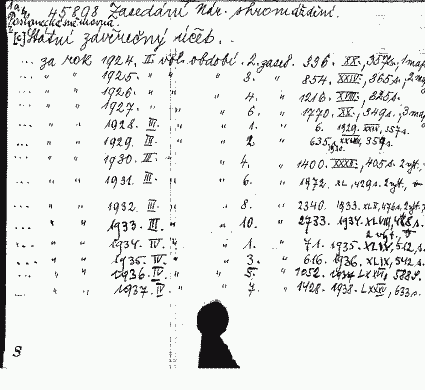 45898 Zasedání Nár. shromáždění.
[c] Státní závěrečný účet.
... za rok 1924. III. vol. období. 2. zased. 336. XX., 357s., 1 map
... " " 1925. " " " 3. " 854. XXIV., 365s.,
... " " 1926. " " " 4. " 1216. XVIII.,
... " " 1927. " " " 6. " 1770. XX., 349s., 3 map
... " " 1928. III. " " 1. " 6. 1929. XXIX, 357s.
... " " 1929. III. " " 2 " 635. 1930.
... " " 1930. III. " " 4. " 1400. XXXX., 405s. 2 vyt.
... " " 1931. III. " " 6. " 1972. XL, 429s. 2 vyt.
... " " 1932. III. " " 8. " 2340. 1933. XLV, 476s. 2 vyt.
... " " 1933. III. " " 10. " 2733. 1934. XLVIII, 2 vyt.
... " " 1934. IV. " " 1. " 71. 1935. XLIX, 512s.
... " " 1935. IV. " " 3. " 616. 1936. XLIX, 542s.
... " " 1936. IV. " " 5. " 1052. 588s.
... " " 1937. IV " " 7. " 1428. 1938. LXXIV, 633s.
8